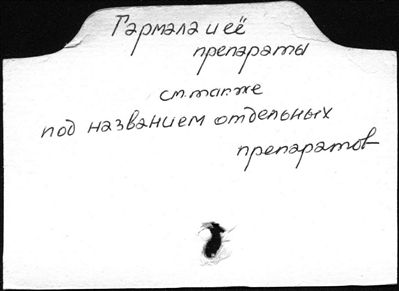 Гармала и её
препараты
см. также
под названием отдельных
препаратов